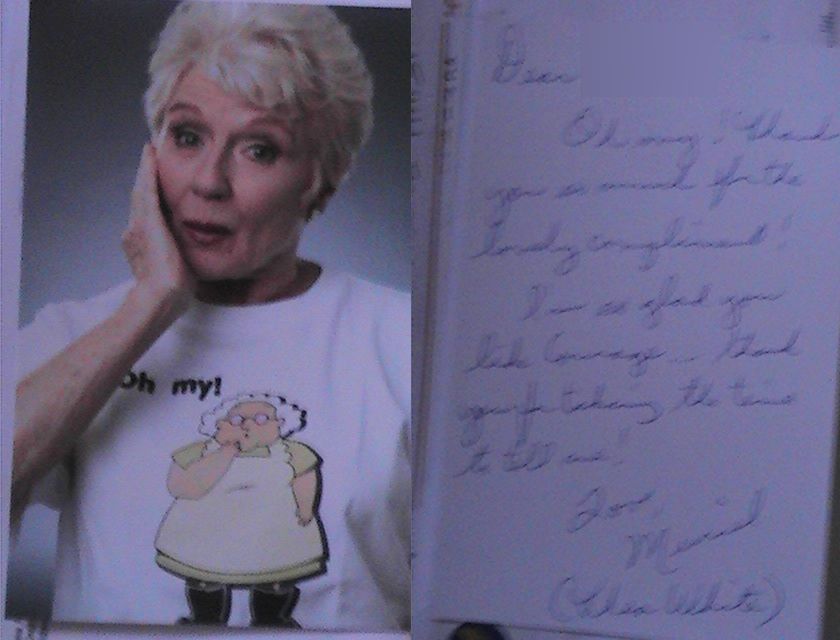 Oh my!
Dear
Oh my! Thank
you so much for the
lovely compliment!
I'm so glad you
like Courage - Thank
you for taking the time
to tell me!
Love,
(Thea White)